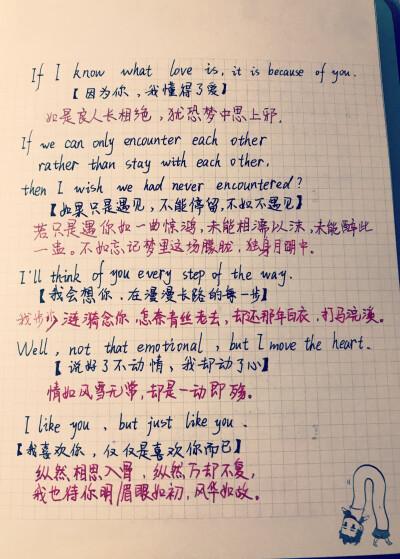 If I know what love is, it is because of you.
【因为你，我懂得了爱】
如是良人长相绝，犹恐梦中思上邪.
If we can only encounter each other
rather than stay with each other,
then I wish we had never encountered?
【如果只是遇见，不能停留，不如不遇见】
若只是遇你如一曲惊鸿，未能相濡以沫，未能醉此
一盅。不如忘记梦里这场朦胧，独身月明中。
I'll think of you every step of the way.
【我会想你，在漫漫长路的每一步】
我步步涟漪念你，怎奈青丝老去，却还那年白衣，打马浣溪。
Well, not that emotional, but I move the heart.
【说好了不动情，我却动了心】
情如风雪无常，却是一动即殇。
I like you, but just like you.
【我喜欢你，仅仅是喜欢你而已】
纵然相思入骨，纵然万劫不复，
我也待你明眉眼如初，风华如故。